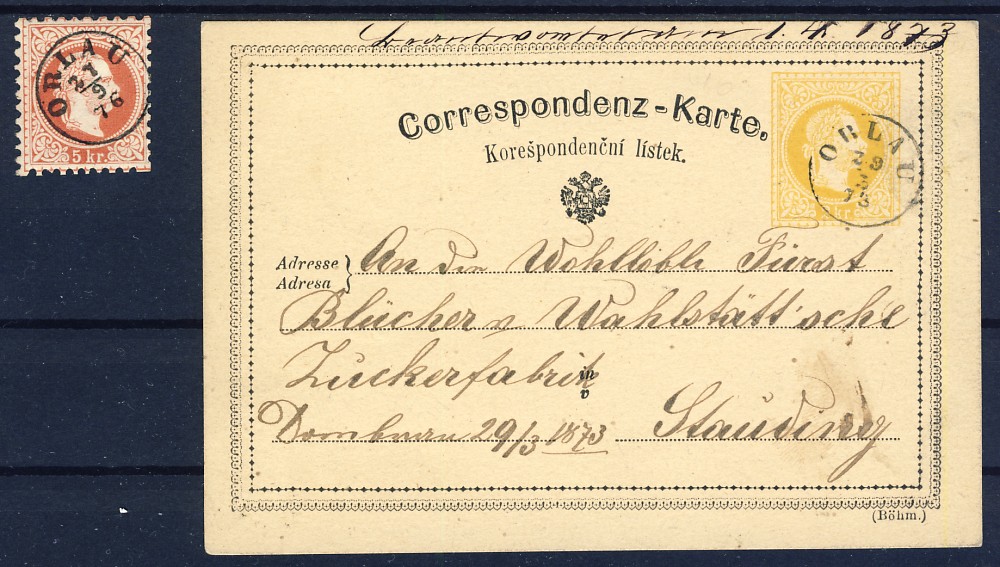 ORLAU
27
9
76
5 kr.
1.4. 1873
Correspondenz-Karte.
Korešpondenční lístek.
ORLAU
29
3
73
Adresse
Adresa
An die Wohllöbl. Fürst
Blücher v Wahlstätt'sche
Zuckerfabrik
in
v
Dombrau 29/3 1873 Stauding
(Böhm.)